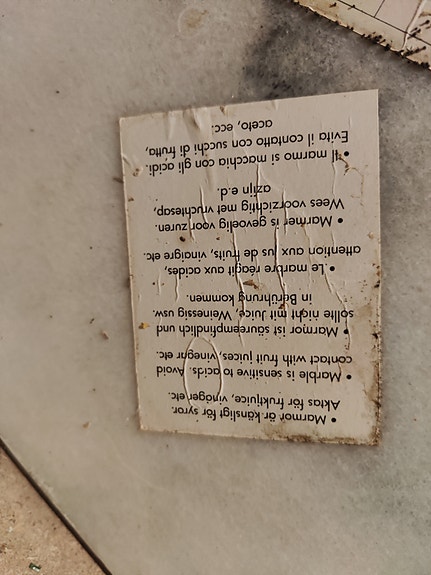 • Marmor är känsligt för syror.
Aktas för fruktjuice, vinäger etc.
• Marble is sensitive to acids. Avoid
contact with fruit juices, vinegar etc.
• Marmor ist säureempfindlich und
sollte night mit, Juice, Weinessig usw.
in Berührung kommen.
• Le marbre réagit aux acides,
attention aux jus de fruits, vinaigre etc.
• Marmer is gevoelig voor zuren.
Wees voorzichtig met vruchtesap,
azijn e.d.
• Il marmo si macchia con gli acidi.
Evita il contatto con succhi di frutta,
aceto, ecc.